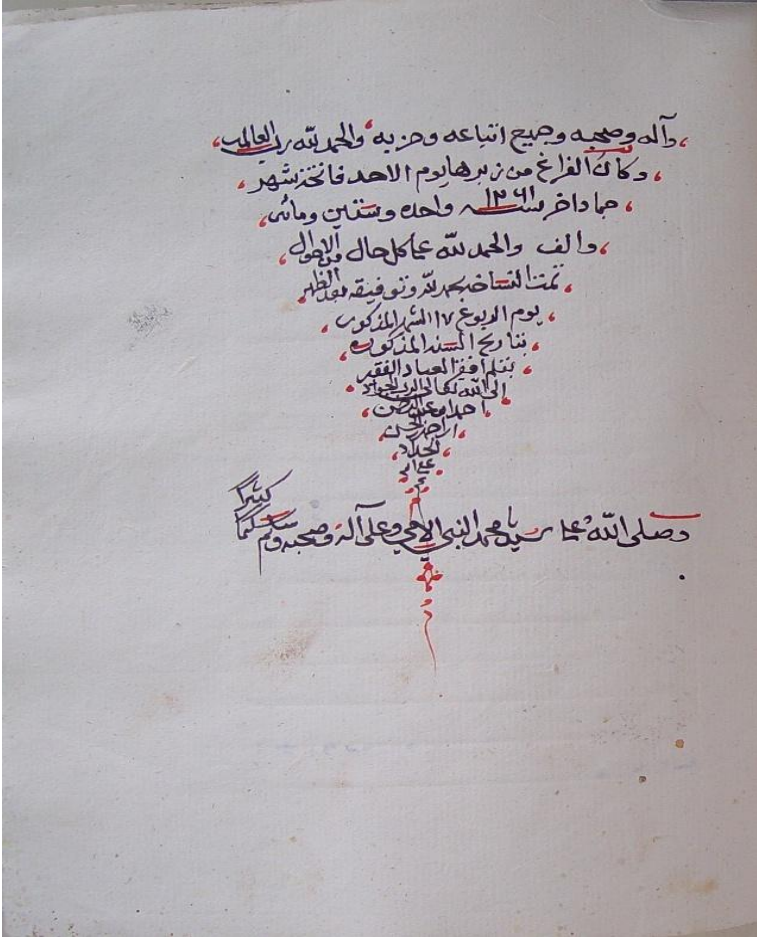 وآله وصحبه وجميع اتباعه وحزبه والحمد لله رب العالمين
وكان الفراغ من زبرها يوم الاحد فاتحة شهر
جماد اخر سنة ١٢٦١ واحده وستين ومائتين
والف والحمد لله على كل حال من الاحوال
تمت النساخه بحمد لله وتوفيقه بعد الظهر
يوم الربوع ١٧ الشهر المذكور
بتاريخ السنه المذكوره
بقلم افقر العباد الفقير
إلى الله تعالى الرب الجواد
احمد بن
ابن احمد
الحداد
وصلى الله على سيدنا محمد النبي الامي وعلى آله وصحبه وسلم تسليما كثيرا